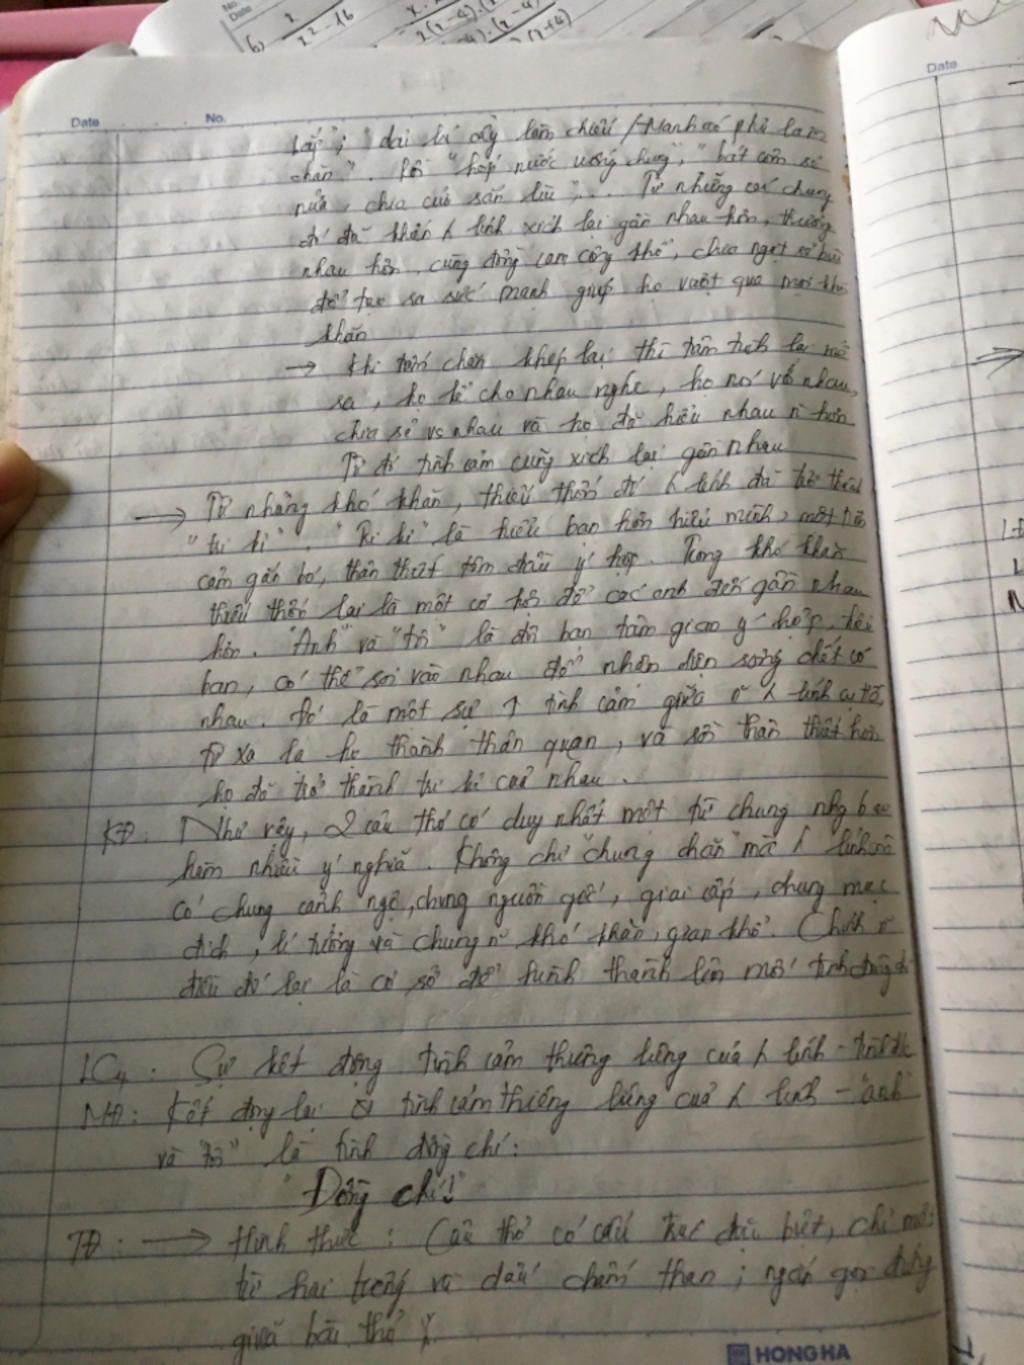 b) x / x² - 16
Date No.
lấy", "dai lá cây làm chiếu / Manh áo phủ làm
chăn". Rồi "hớp nước uống chung", "bát cơm sẻ
nửa, chia củ sắn lùi",... Từ những cái chung
đó đã khiến lính xích lại gần nhau hơn, thương
nhau hơn, cùng đồng cam cộng khổ, chia ngọt sẻ bùi
để tạo ra sức mạnh giúp họ vượt qua mọi khó
khăn
→ Khi tấm chăn khép lại thì tâm tình lại mở
ra, họ kể cho nhau nghe, họ nói về nhau,
chia sẻ vs nhau và họ đã hiểu nhau hơn
Từ đó tình cảm cũng xích lại gần nhau
→ Từ những khó khăn, thiếu thốn đó lính đã trở thành
"tri kỉ". "Tri kỉ" là hiểu bạn hơn hiểu mình, một tình
cảm gắn bó, thân thiết tâm đầu ý hợp. Trong khó khăn
thiếu thốn lại là một cơ hội để các anh đến gần nhau
hơn. "Anh" và "tôi" là đôi bạn tâm giao ý hợp,
bạn, có thể soi vào nhau để nhận diện sống chết có
nhau. Đó là một sự ↑ tình cảm giữa lính cụ Hồ,
từ xa lạ họ thành thân quen, và rồi thân thiết hơn
họ đã trở thành tri kỉ của nhau.
KĐ: Như vậy, 2 câu thơ có duy nhất một từ chung nhg bao
hàm nhiều ý nghĩa. Không chỉ "chung chăn" mà lính còn
có chung cảnh ngộ, chung nguồn gốc, giai cấp, chung mục
đích, lí tưởng và chung khó khăn, gian khổ. Chính
điều đó lại là cơ sở để hình thành lên mối tình đồng chí
LC4: Sự kết đọng tình cảm thiêng liêng của lính - tình đ/c
MĐ: Kết đọng lại tình cảm thiêng liêng của lính - "anh"
và "tôi" là tình đồng chí:
"Đồng chí!"
TĐ: → Hình thức: Câu thơ có cấu trúc đặc biệt, chỉ một
từ hai tiếng và dấu chấm than; ngắn gọn đứng
giữa bài thơ
HONG HA
Date